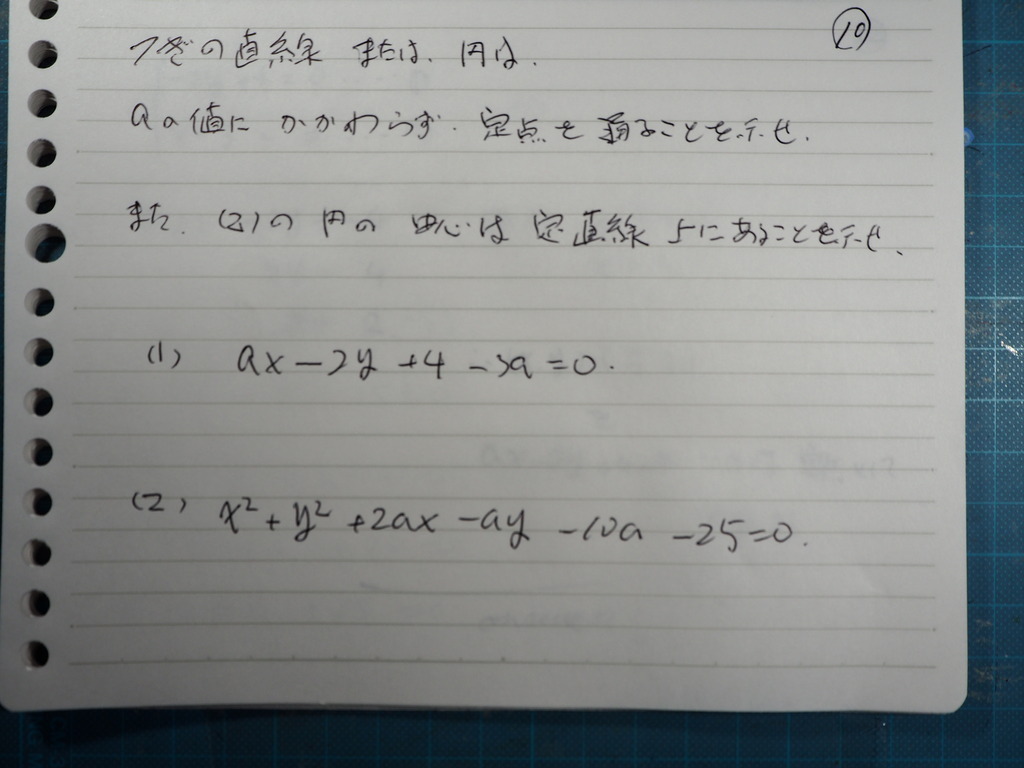 ⑩
つぎの直線 または、円は、
aの値に かかわらず、定点を 通ることを示せ.
また、(2)の 円の 中心は 定直線 上にあることを示せ、
(1) ax-2y+4-3a=0.
(2) x²+y²+2ax-ay-10a-25=0.